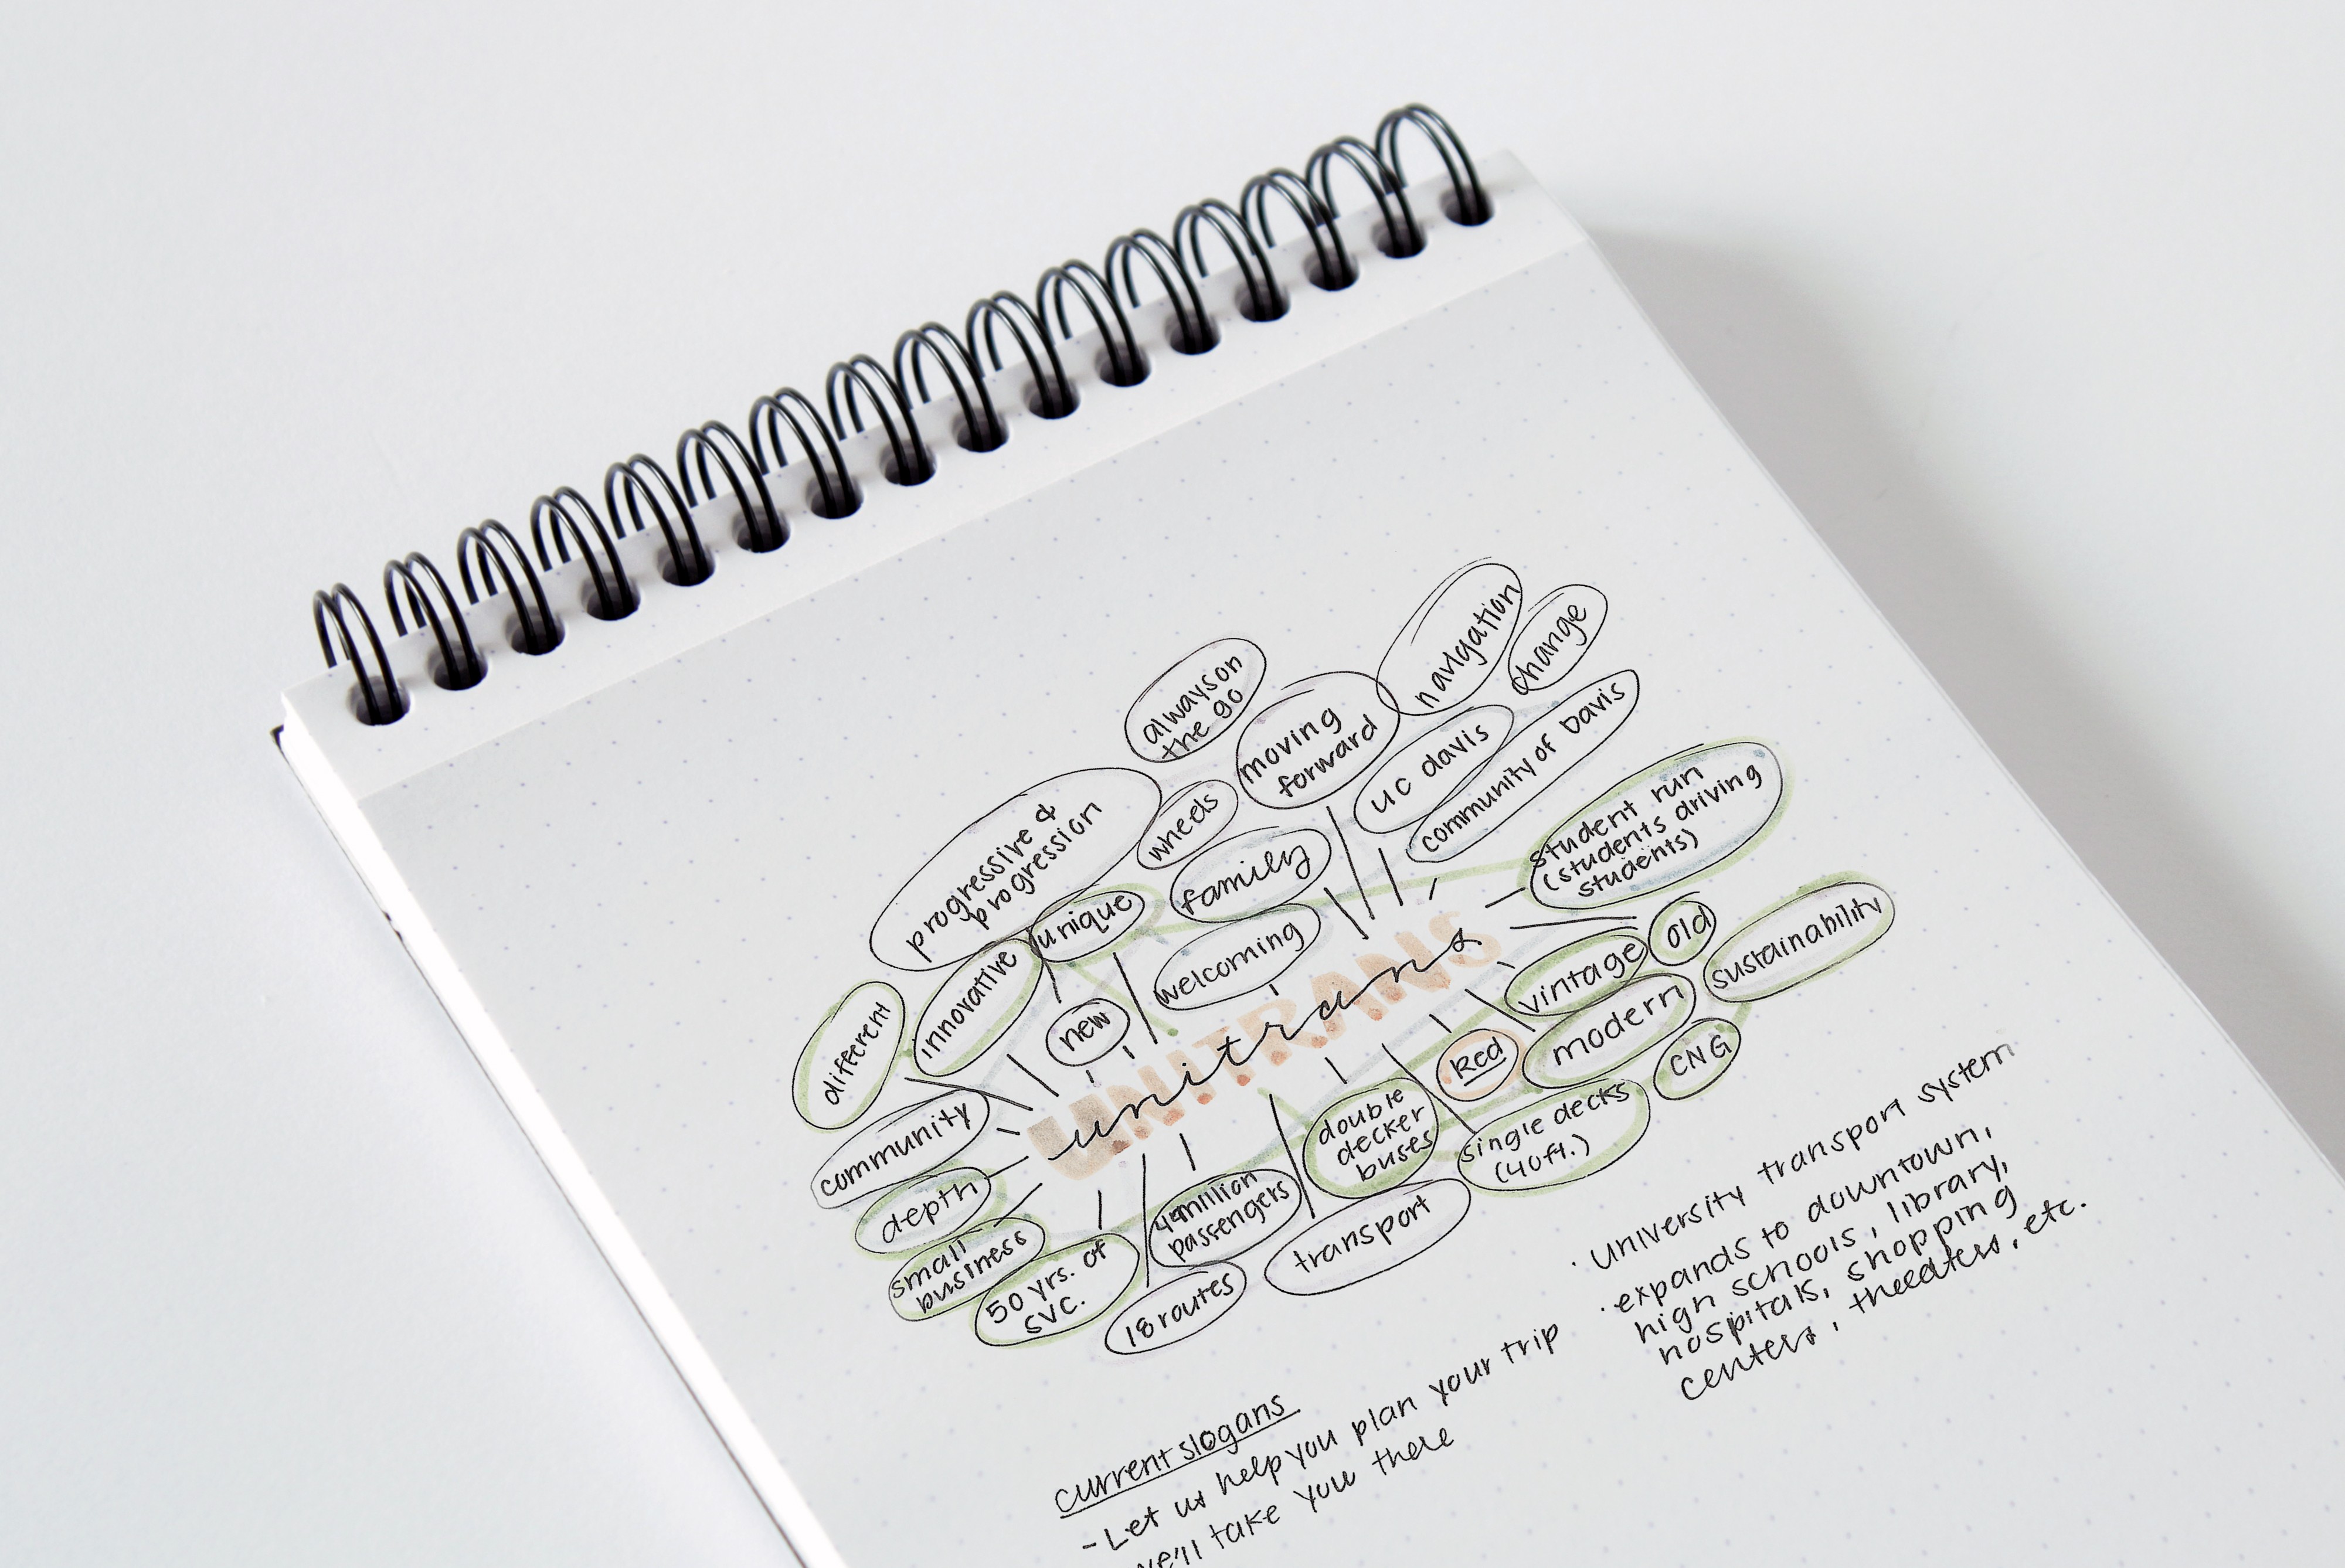 always on
the go
moving
forward
navigation
change
uc davis
community of Davis
progressive &
progression
wheels
family
unique
welcoming
innovative
different
new
student run
(students driving
students)
old
vintage
sustainability
modern
Red
CNG
UNITRANS
unitrans
community
depth
small
business
50 yrs. of
svc.
4 million
passengers
18 routes
double
decker
buses
single decks
(40ft.)
transport
· University transport system
· expands to downtown,
high schools, library,
hospitals, shopping
centers, theeaters, etc.
current slogans
- Let us help you plan your trip
we'll take you there